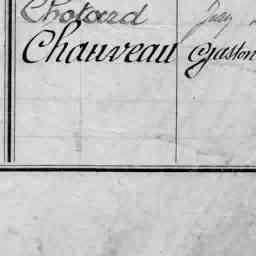 Chotard
Chauveau Gaston